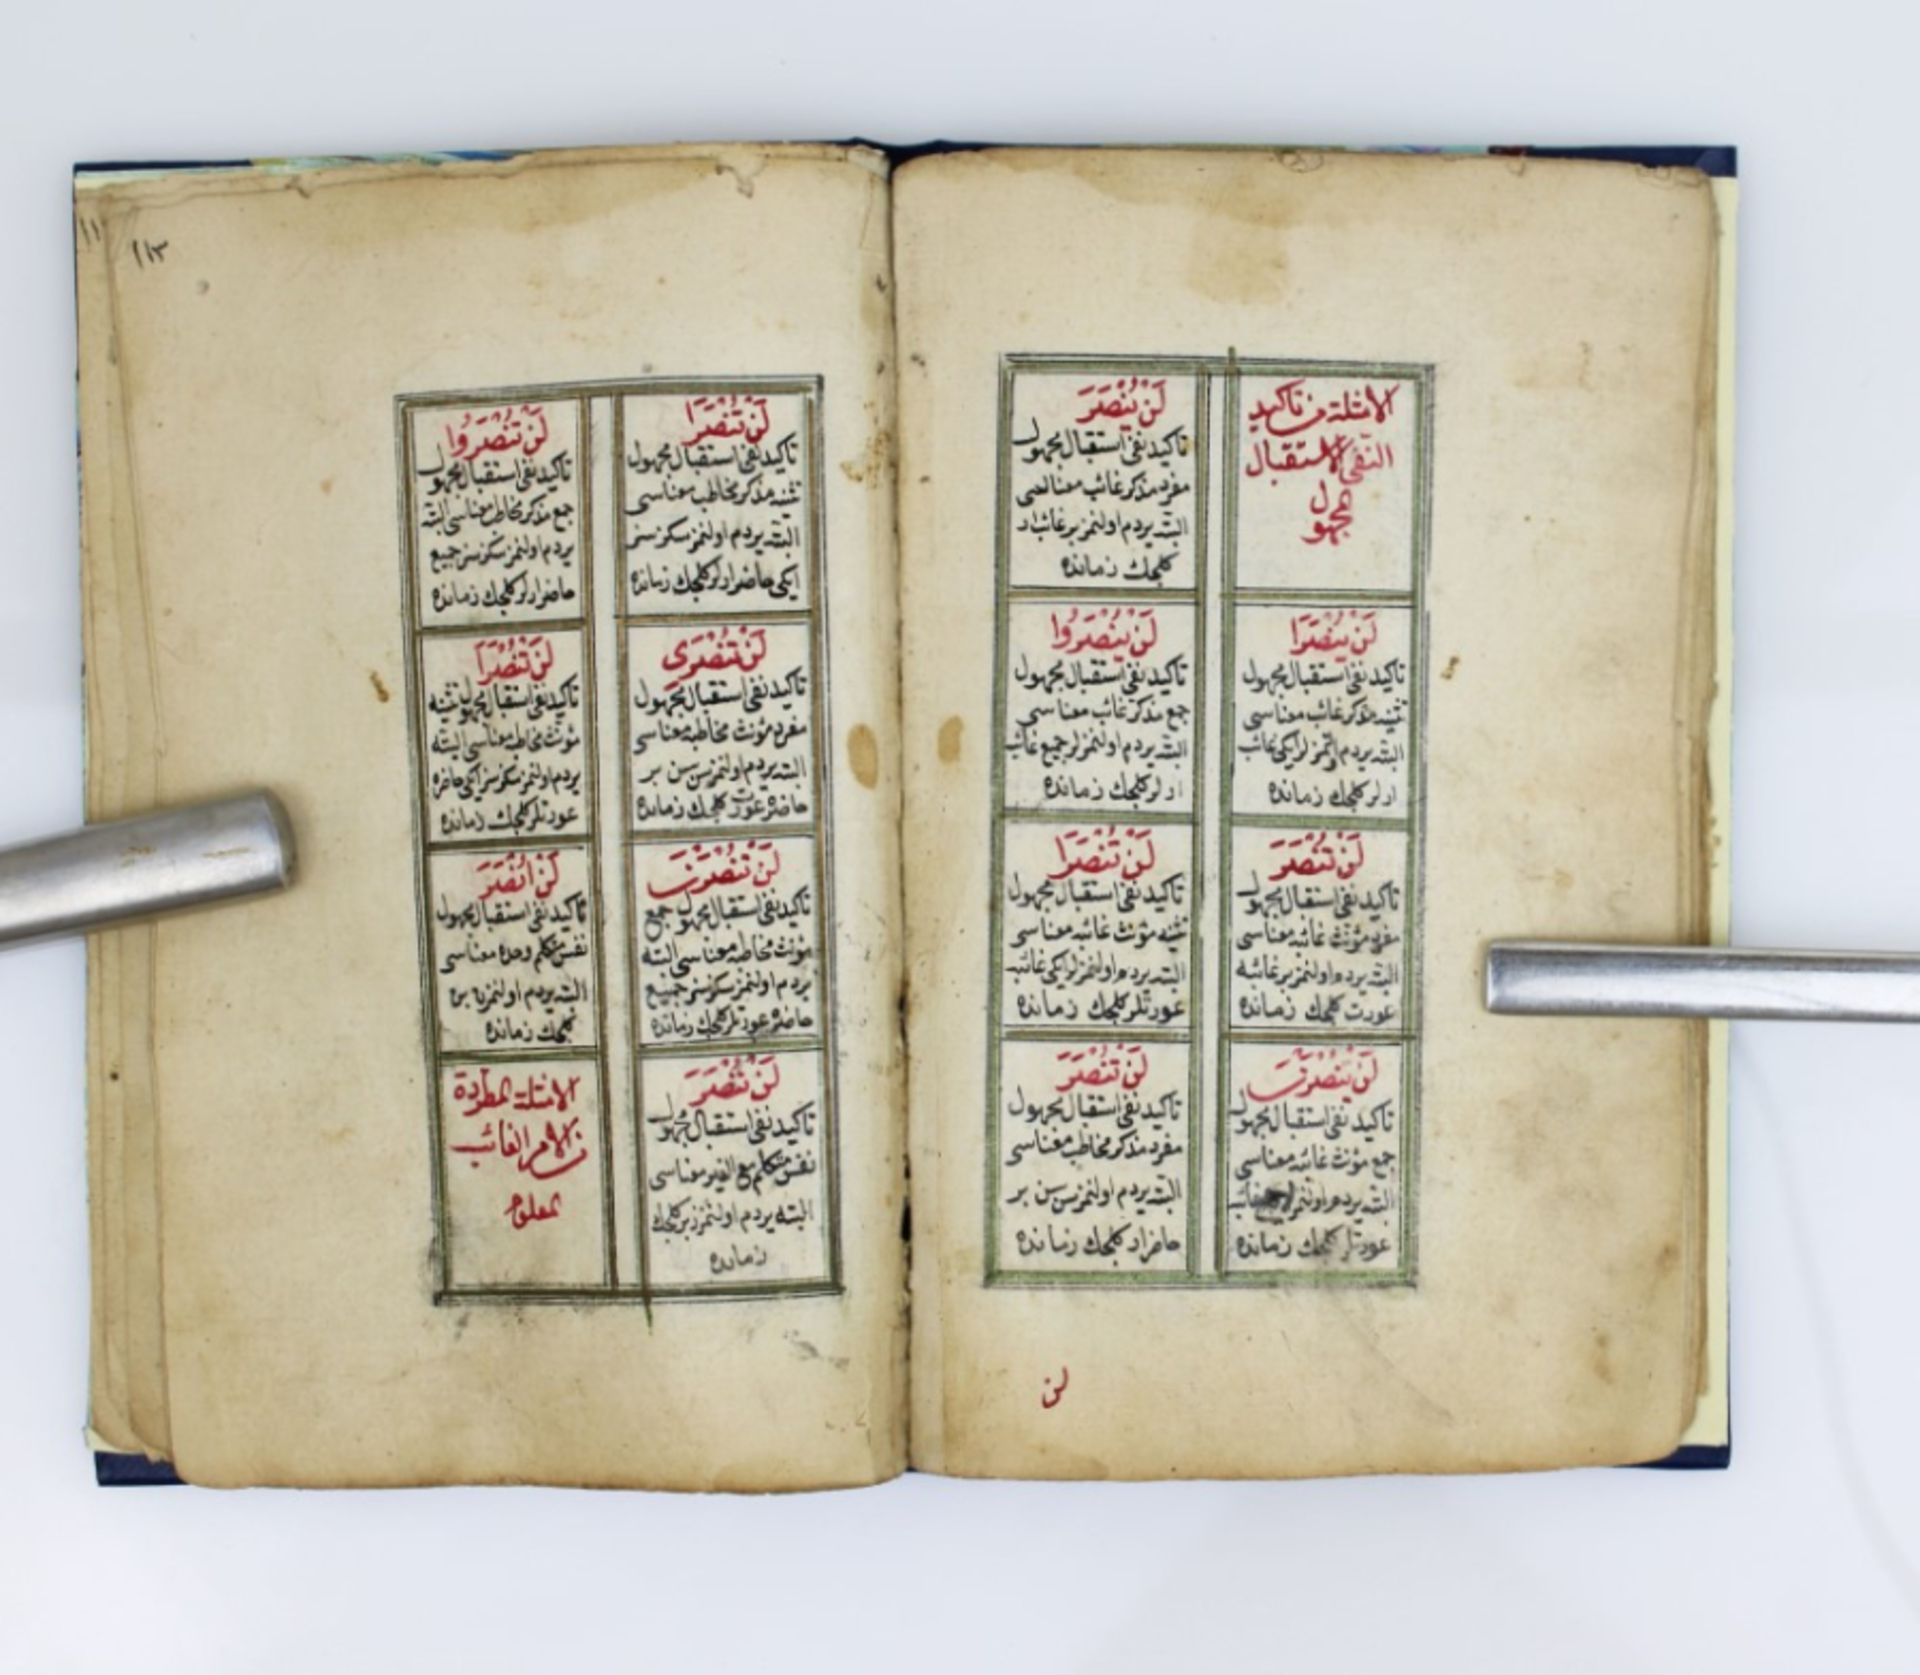 الامثلة من تأكيد
النفى الاستقبال
مجهول
لَنْ يُنْصَرَ
تاكيد نفى استقبال مجهول
مفرد مذكر غائب معناسى
البته يردم اولنمز بر غائب ار
كلجك زمانده
لَنْ يُنْصَرَا
تاكيد نفى استقبال مجهول
تثنيه مذكر غائب معناسى
البته يردم اولنمزلر ايكى غائب
ارلر كلجك زمانده
لَنْ يُنْصَرُوا
تاكيد نفى استقبال مجهول
جمع مذكر غائب معناسى
البته يردم اولنمزلر جميع غائب
ارلر كلجك زمانده
لَنْ تُنْصَرَ
تاكيد نفى استقبال مجهول
مفرد مؤنث غائبه معناسى
البته يردم اولنمز بر غائبه
عورت كلجك زمانده
لَنْ تُنْصَرَا
تاكيد نفى استقبال مجهول
تثنيه مؤنث غائبه معناسى
البته يردم اولنمزلر ايكى غائبه
عورتلر كلجك زمانده
لَنْ يُنْصَرْنَ
تاكيد نفى استقبال مجهول
جمع مؤنث غائبه معناسى
البته يردم اولنمزلر جميع غائبه
عورتلر كلجك زمانده
لَنْ تُنْصَرَ
تاكيد نفى استقبال مجهول
مفرد مذكر مخاطب معناسى
البته يردم اولنمزسن سن بر
حاضر ار كلجك زمانده
لن
١١٣
١١
لَنْ تُنْصَرَا
تاكيد نفى استقبال مجهول
تثنيه مذكر مخاطب معناسى
البته يردم اولنمزسكز سز
ايكى حاضر ارلر كلجك زمانده
لَنْ تُنْصَرُوا
تاكيد نفى استقبال مجهول
جمع مذكر مخاطب معناسى البته
يردم اولنمزسكز سز جميع
حاضر ارلر كلجك زمانده
لَنْ تُنْصَرِى
تاكيد نفى استقبال مجهول
مفرد مؤنث مخاطبه معناسى
البته يردم اولنمزسن سن بر
حاضره عورت كلجك زمانده
لَنْ تُنْصَرَا
تاكيد نفى استقبال مجهول تثنيه
مؤنث مخاطبه معناسى البته
يردم اولنمزسكز سز ايكى حاضره
عورتلر كلجك زمانده
لَنْ تُنْصَرْنَ
تاكيد نفى استقبال مجهول جمع
مؤنث مخاطبه معناسى البته
يردم اولنمزسكز سز جميع
حاضره عورتلر كلجك زمانده
لَنْ اُنْصَرَ
تاكيد نفى استقبال مجهول
نفس متكلم وحده معناسى
البته يردم اولنمز بن
كلجك زمانده
لَنْ نُنْصَرَ
تاكيد نفى استقبال مجهول
نفس متكلم مع الغير معناسى
البته يردم اولنمزز بز كلجك
زمانده
الامثلة المطردة
من الامر الغائب
المعلوم